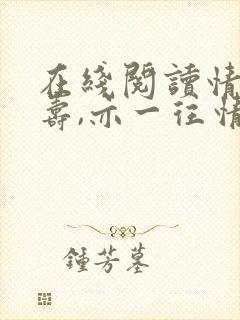 在綫閱讀情
壽,亦一往情
鍾芳墓